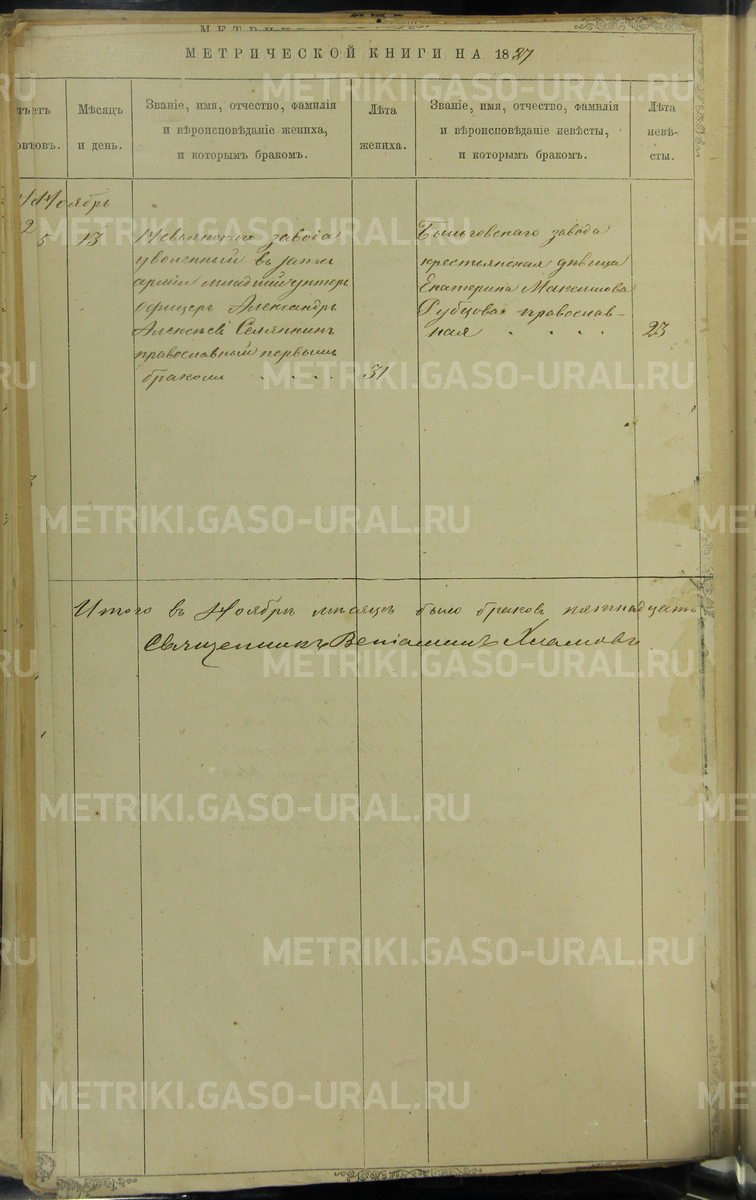 МЕТРИЧЕСКОЙ КНИГИ НА 1887
Мѣсяцъ и день.
Званіе, имя, отчество, фамилія и вѣроисповѣданіе жениха, и которымъ бракомъ.
Лѣта жениха.
Званіе, имя, отчество, фамилія и вѣроисповѣданіе невѣсты, и которымъ бракомъ.
Лѣта невѣ-сты.
Ноябрь
5
13
Невьянскаго завода
уволенный въ запас
арміи младшій унтеръ
офицеръ Александръ
Алексѣев Семянкин
православный первымъ
бракомъ
31
Быньговскаго завода
крестьянская дѣвица
Екатерина Максимова
Рубцова православ-
ная
23
Итого въ Ноябрѣ мѣсяцѣ было браковъ пятнадцать
Священникъ Веніаминъ Хламовъ
METRIKI.GASO-URAL.RU